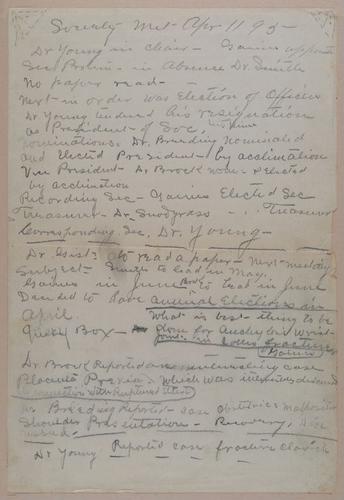 Society met Apr 11 95-
Dr Young in chair - Gaines appointed
Sec Protem - in absence Dr. Smith
No paper read -
Next in order was Election of Officers
Dr Young tendered his resignation
as President of Soc,
nominations. Dr. Breeding nominated
and Elected President - by acclimation
Vice President - Dr Brock nom - & Elected
by acclimation
Recording Sec - Gaines Elected Sec
Treasurer - Dr Snodgrass - " Treasurer
Corresponding Sec, Dr. Young -
Dr to read a paper - Next meeting
Subject - Smith to lead in May.
Gaines in June to that in June
Decided to have annual Elections in
April.
What is best thing to be
Query Box - done for Anchylosis Wrist
joint in Colles fracture
Gaines
Dr. Brock Reported an interesting case
Placenta Previa - which was discussed
in connection with Ruptured Uterus
Dr Breeding Reported - case obstetrics
Shoulder Presentation - Recovery,
Dr Young Reported case fracture clavicle